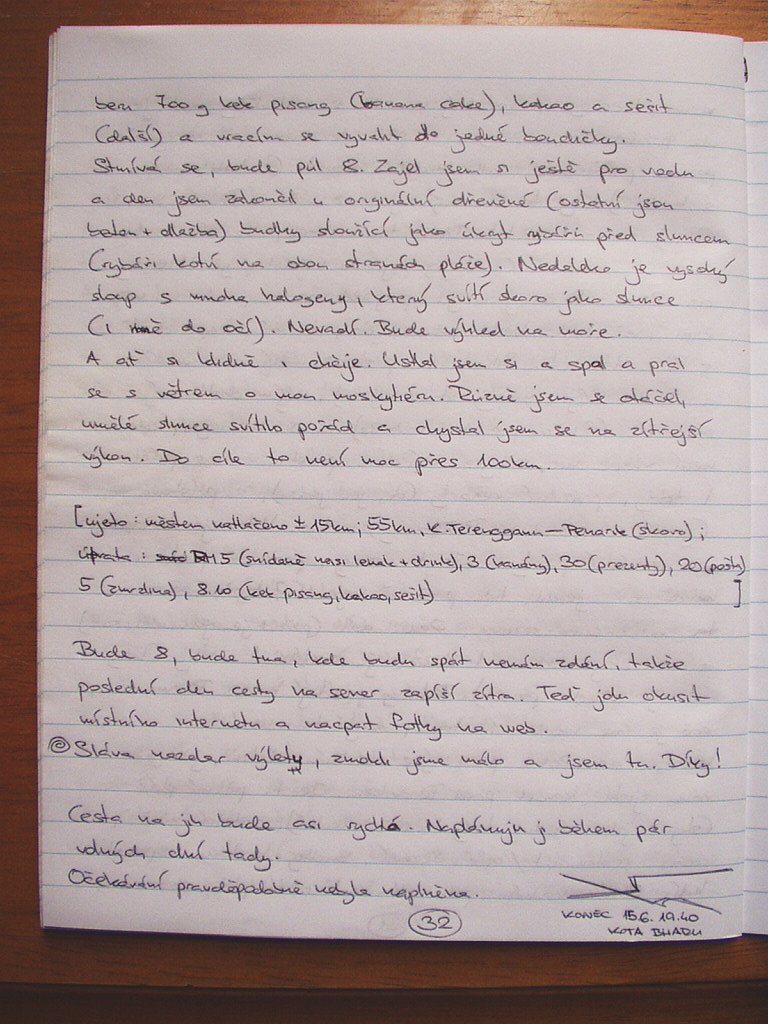 beru 700g kek pisang (banana cake), kakao a sešit
(další) a vracím se vyvalit do jedné boudičky.
Stmívá se, bude půl 8. Zajel jsem si ještě pro vodu
a den jsem zakončil u originální dřevěné (ostatní jsou
beton + dlažba) budky sloužící jako úkryt rybářů před sluncem
(rybáři kotví na obou stranách pláže). Nedaleko je vysoký
sloup s mnoha halogeny, který svítí skoro jako slunce
(i mně do očí). Nevadí. Bude výhled na moře.
A ať si klidně i chčije. Ustlal jsem si a spal a pral
se s větrem o mou moskytiéru. Různě jsem se otáčel,
umělé slunce svítilo pořád a chystal jsem se na zítřejší
výkon. Do cíle to není moc přes 100km.
[ujeto: městem natlačeno ± 15km; 55km, K.Terengganu — Penarik (skoro);
útrata: 5 (snídaně nasi lemak + drink), 3 (banány), 30 (prezenty), 20 (pošta)
5 (zmrzlina), 8.10 (kek pisang, kakao, sešit) ]
Bude 8, bude tma, kde budu spát nemám zdání, takže
poslední den cesty na sever zapíši zítra. Teď jdu okusit
místního internetu a nacpat fotky na web.
Sláva nazdar výletu, zmokli jsme málo a jsem tu. Díky!
Cesta na jih bude asi rychlá. Naplánuju ji během pár
volných dní tady.
Očekávání pravděpodobně nebyla naplněna.
32
KONEC 15.6. 19.40
KOTA BHARU